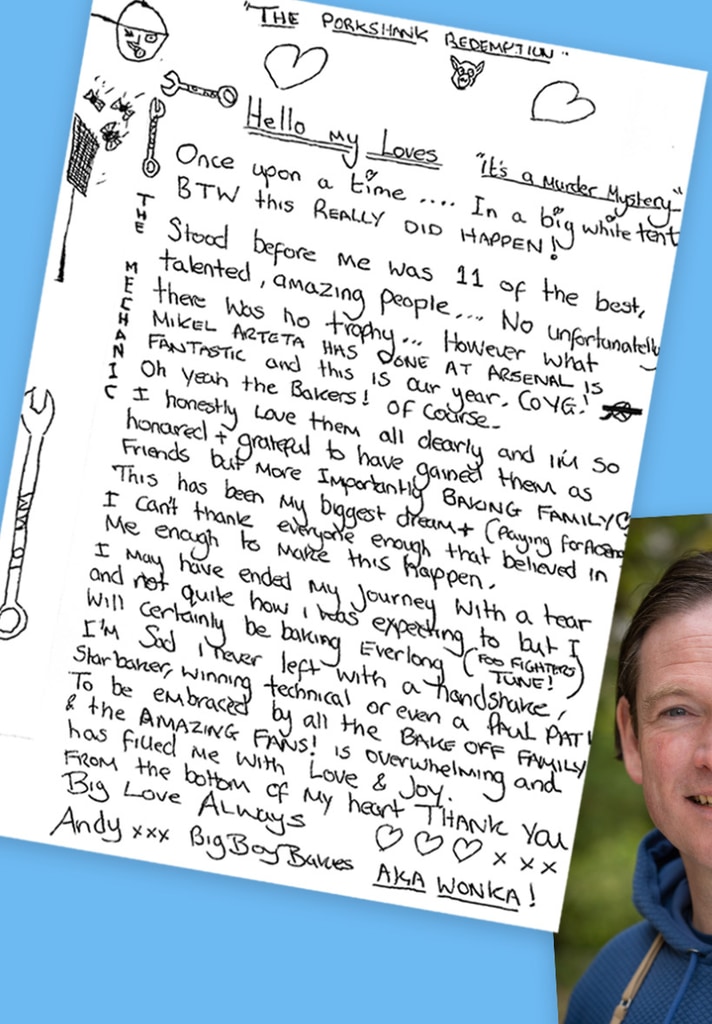 "THE PORKSHANK REDEMPTION"
Hello My Loves
"It's a Murder Mystery"
Once upon a time .... In a big white tent
BTW this REALLY DID HAPPEN!
Stood before me was 11 of the best,
talented, amazing people.... No unfortunately
there was no trophy... However what
MIKEL ARTETA HAS DONE AT ARSENAL IS
FANTASTIC and this is our year. COYG!
Oh yeah the Bakers! Of course.
I honestly love them all dearly and I'm so
honoured + grateful to have gained them as
Friends but More Importantly BAKING FAMILY
This has been my biggest dream + (Playing for Arsenal
I can't thank everyone enough that believed in
Me enough to make this happen.
I may have ended my Journey with a tear
and not quite how I was expecting to but I
Will certainly be baking Everlong (FOO FIGHTERS
TUNE!)
I'm Sad I never left with a handshake,
Starbaker, winning technical or even a PAUL PAT!
To be embraced by all the BAKE OFF FAMILY
& the AMAZING FANS! is overwhelming and
has filled me with Love & Joy.
From the bottom of My heart THANK YOU
Big Love Always
Andy xxx BigBoyBakes
x x x
AKA WONKA!
THE MECHANIC